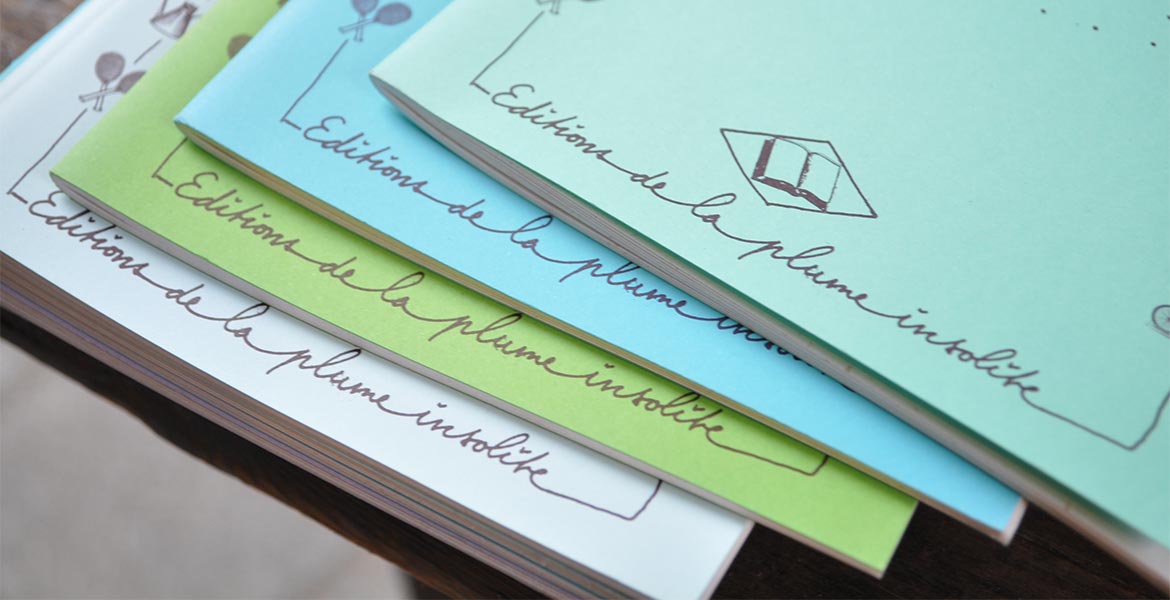 Editions de la plume insolite
Editions de la plume inso
Editions de la plume insolite
Editions de la plume insolite